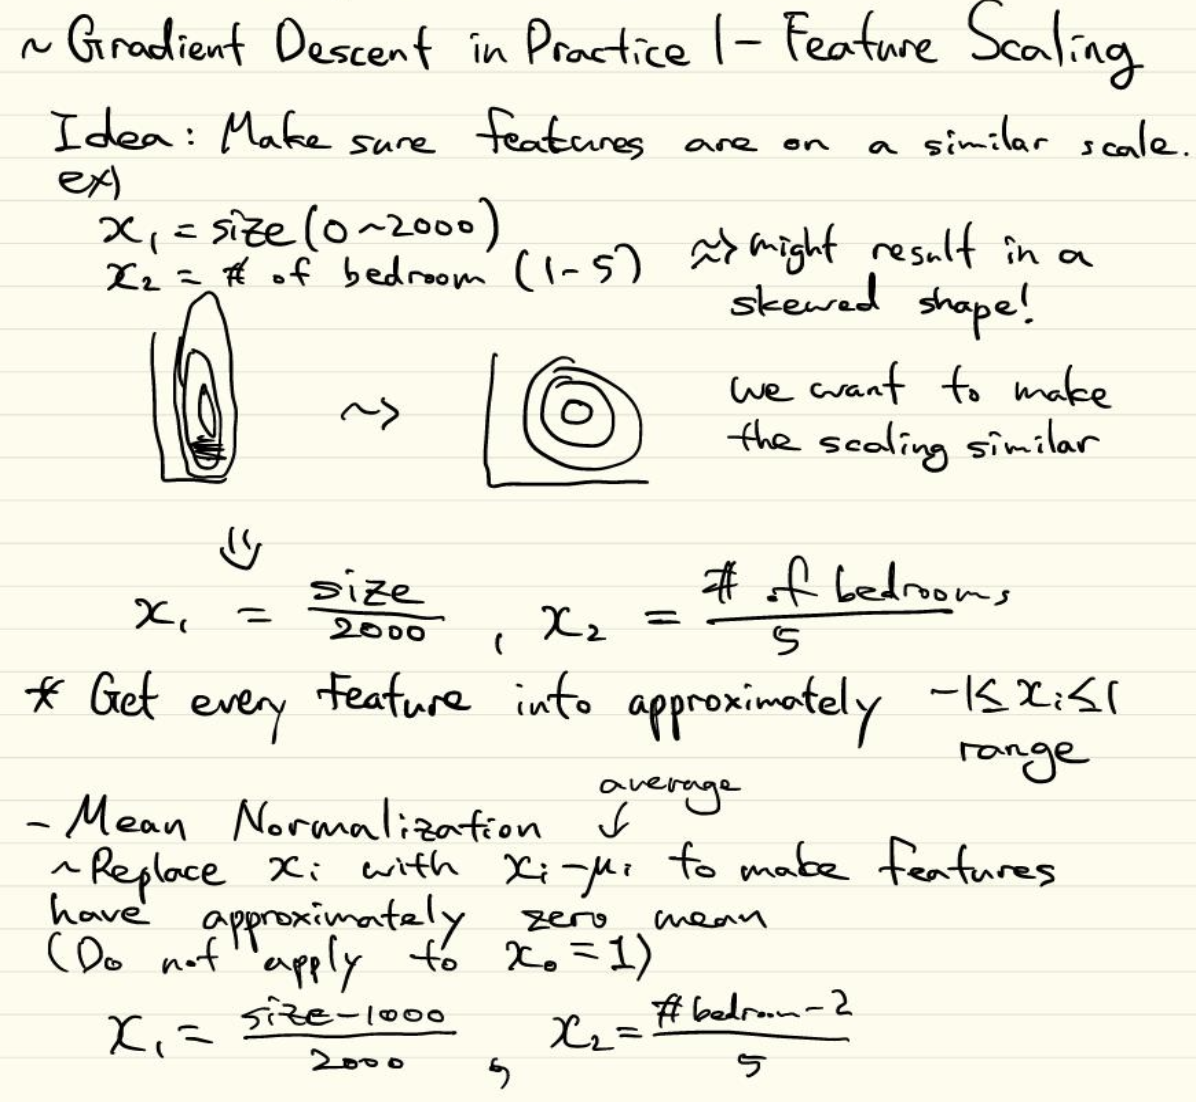 ~ Gradient Descent in Practice 1 - Feature Scaling
Idea: Make sure features are on a similar scale.
ex)
x₁ = size (0~2000)
x₂ = # of bedroom (1-5)
~> might result in a
skewed shape!
~>
we want to make
the scaling similar
x₁ = size/2000 , x₂ = # of bedrooms/5
* Get every feature into approximately -1≤xᵢ≤1
range
average
- Mean Normalization ↓
~ Replace xᵢ with xᵢ-μᵢ to make features
have approximately zero mean
(Do not apply to x₀=1)
x₁ = size-1000/2000 , x₂ = # bedroom-2/5